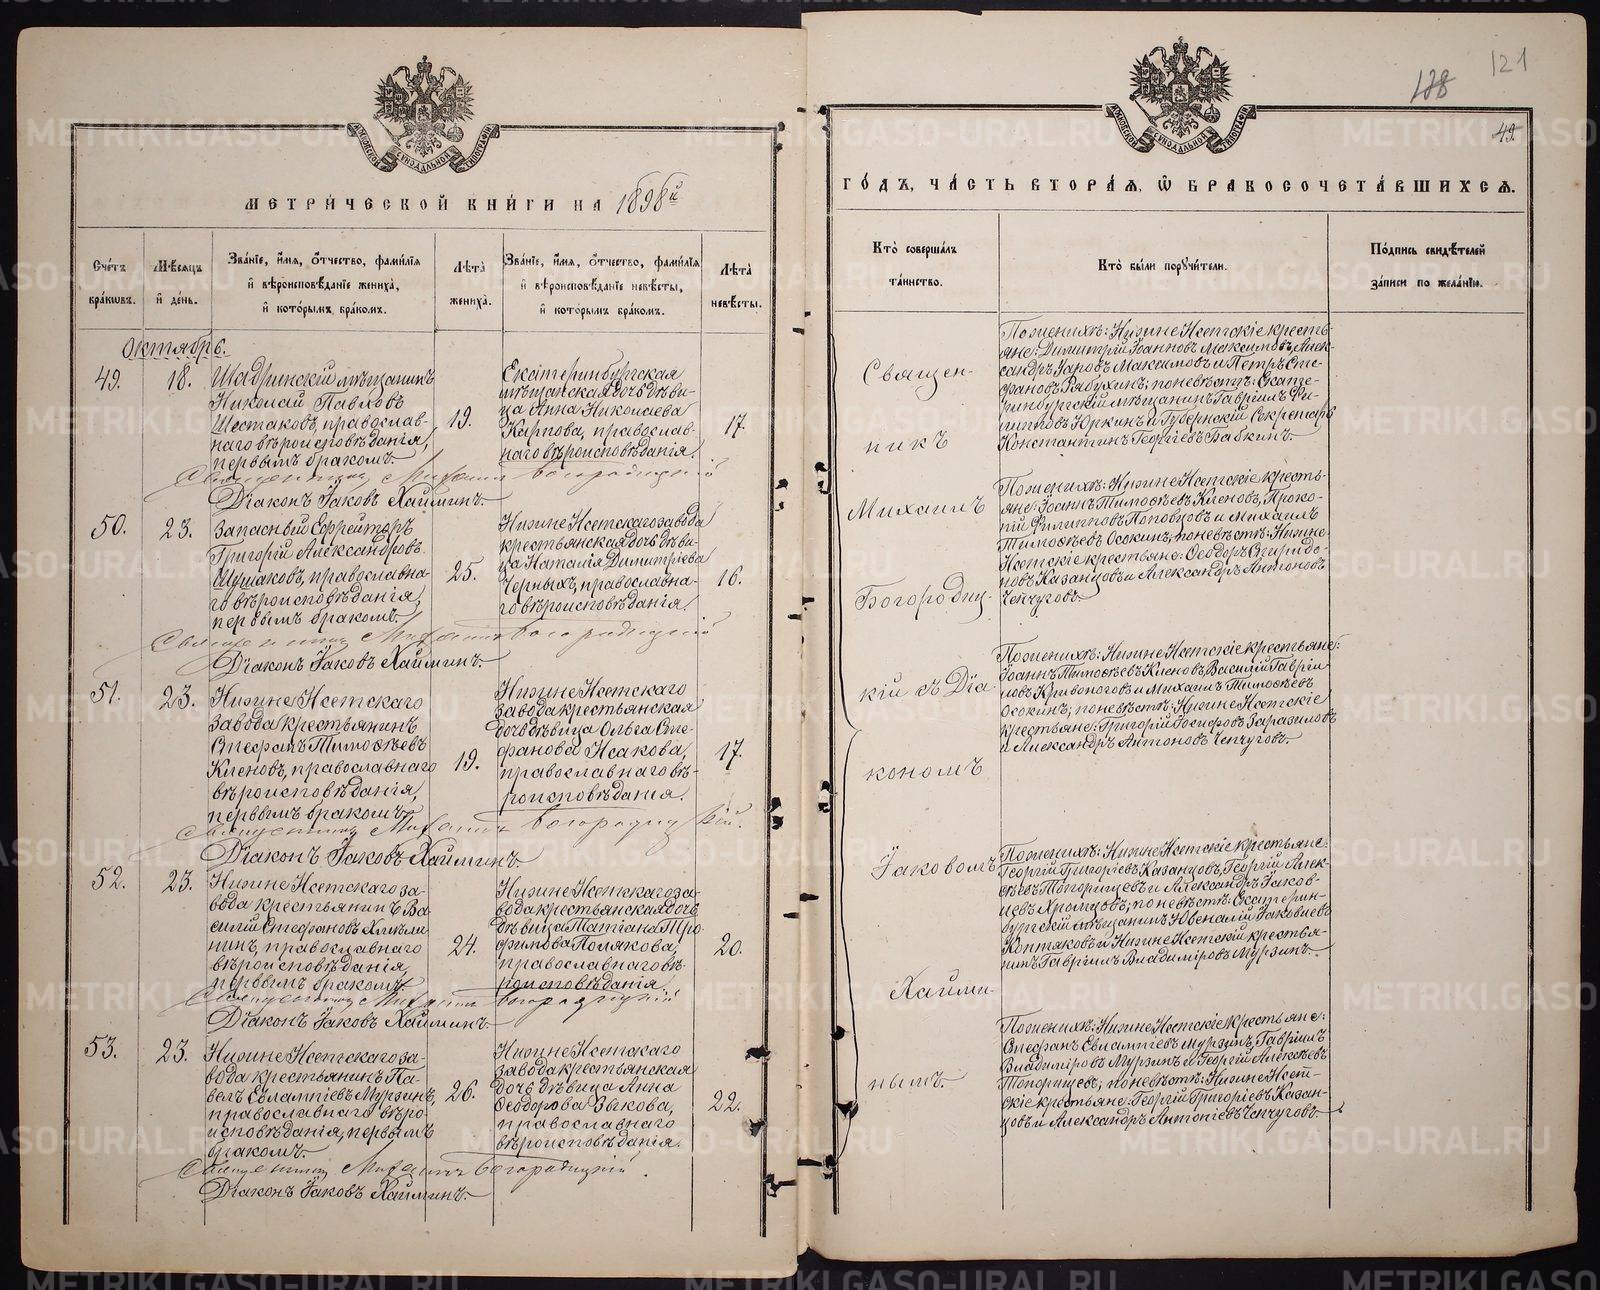 МЕТРИ́ЧЕСКОЙ КНИ́ГИ НА 1898й
Сче́тъ
бра́кѡвъ.
Мѣ́сяцъ
и҆ де́нь.
Зва́нїе, и҆́мя, ѻ҆́тчество, фами́лїя
и҆ вѣроисповѣ́данїе жениха̀,
и҆ кото́рымъ бра́комъ.
Лѣ́та̀
жениха̀.
Зва́нїе, и҆́мя, ѻ҆́тчество, фами́лїя
и҆ вѣроисповѣ́данїе невѣ́сты,
и҆ кото́рымъ бра́комъ.
Лѣ́та̀
невѣ́сты.
Октябрь.
49.
18.
Шадринскій мѣщанинъ
Николай Павловъ
Шестаковъ, православ-
наго вѣроисповѣданія,
первымъ бракомъ.
19.
Екатеринбургская
мѣщанская дочь дѣви-
ца Анна Николаева
Карпова, православ-
наго вѣроисповѣданія.
17.
Священникъ Михаилъ Богородицкій
Діаконъ Іаковъ Хайминъ.
50.
23.
Запасный Ефрейторъ
Григорій Александровъ
Шушаковъ, православна-
го вѣроисповѣданія,
первымъ бракомъ.
25.
Нижне Исетскаго завода
крестьянская дочь дѣви-
ца Наталія Димитріева
Черныхъ, православна-
го вѣроисповѣданія.
16.
Священникъ Михаилъ Богородицкій
Діаконъ Іаковъ Хайминъ.
51.
23.
Нижне Исетскаго
завода крестьянинъ
Стефанъ Тимоѳеевъ
Кленовъ, православнаго
вѣроисповѣданія,
первымъ бракомъ.
19.
Нижне Исетскаго
завода крестьянская
дочь дѣвица Ольга Сте-
фанова Исакова,
православнаго вѣ-
роисповѣданія.
17.
Священникъ Михаилъ Богородицкій.
Діаконъ Іаковъ Хайминъ.
52.
23.
Нижне Исетскаго за-
вода крестьянинъ Ва-
силій Стефановъ
нинъ, православнаго
вѣроисповѣданія,
первымъ бракомъ.
24.
Нижне Исетскаго за-
вода крестьянская дочь
дѣвица Татіана Тро-
фимова Полякова,
православнаго вѣ-
роисповѣданія.
20.
Священникъ Михаилъ Богородицкій
Діаконъ Іаковъ Хайминъ.
53.
23.
Нижне Исетскаго за-
вода крестьянинъ Па-
велъ Евлампіевъ Мурзинъ,
православнаго вѣро-
исповѣданія, первымъ
бракомъ.
26.
Нижне Исетскаго
завода крестьянская
дочь дѣвица Анна
Ѳеодорова Зыкова,
православнаго
вѣроисповѣданія.
22.
Священникъ Михаилъ Богородицкій.
Діаконъ Іаковъ Хайминъ.
138
121
49.
ГО́ДЪ, ЧА́СТЬ ВТОРА́Я, Ѡ҆ БРАКОСОЧЕТА́ВШИХСЯ.
Кто̀ соверша́лъ
та́инство.
Кто̀ бы́ли порꙋчи́тели.
По́дпись свидѣ́телей
за́писи по жела́нїю.
Священ-
никъ
Михаилъ
Богородиц-
кій съ Діа-
кономъ
Іаковомъ
Хайми-
нымъ.
По женихѣ: Нижне Исетскіе кресть-
яне: Димитрій Іоанновъ Максимовъ, Алек-
сандръ Максимовъ и Петръ Сте-
фановъ Рябухинъ; по невѣстѣ: Екате-
ринбургскій мѣщанинъ Гавріилъ Фи-
липповъ Юркинъ и Губернскій Секретарь
Константинъ Георгіевъ Бабкинъ.
По женихѣ: Нижне Исетскіе кресть-
яне: Іоаннъ Тимоѳеевъ Кленовъ, Проко-
пій Филипповъ Поповцовъ и Михаилъ
Тимоѳеевъ Осокинъ; по невѣстѣ: Нижне-
Исетскіе крестьяне: Ѳеодоръ Спиридо-
новъ Казанцовъ и Александръ Антоновъ
Чепчуговъ.
По женихѣ: Нижне Исетскіе крестьяне:
Іоаннъ Тимоѳеевъ Кленовъ, Василій Гавріи-
ловъ Кривоноговъ и Михаилъ Тимоѳеевъ
Осокинъ; по невѣстѣ: Нижне Исетскіе
крестьяне: Григорій Іосифовъ Заразиловъ
и Александръ Антоновъ Чепчуговъ.
По женихѣ: Нижне Исетскіе крестьяне:
Георгій Григоріевъ Казанцовъ, Георгій Алек-
сѣевъ Топорищевъ и Александръ Іаков-
левъ Хромцовъ; по невѣстѣ: Екатерин-
бургскій мѣщанинъ Ювеналій Іаковлевъ
Коптяковъ и Нижне Исетскій крестья-
нинъ Гавріилъ Владиміровъ Мурзинъ.
По женихѣ: Нижне Исетскіе крестьяне:
Стефанъ Евлампіевъ Мурзинъ, Гавріилъ
Владиміровъ Мурзинъ и Георгій Алексѣевъ
Топорищевъ; по невѣстѣ: Нижне Исет-
скіе крестьяне: Георгій Григоріевъ Казан-
цовъ и Александръ Антоніевъ Чепчуговъ.